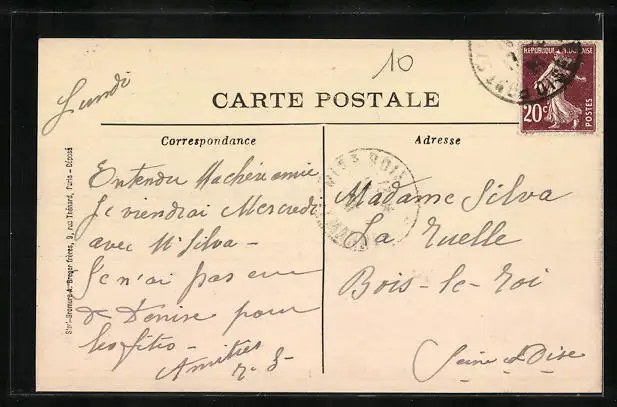 10
Lundi
CARTE POSTALE
REPUBLIQUE FRANÇAISE
20c
POSTES
Correspondance
Adresse
Entendu Ma chère amie
Je viendrai Mercredi
avec Mr Silva -
Je n'ai pas eu
de Denise pour
les fêtes -
Amitiés
Madame Silva
La Ruelle
Bois-le-Roi
Seine & Oise
Breger frères, 9, rue Thénard, Paris - Déposé